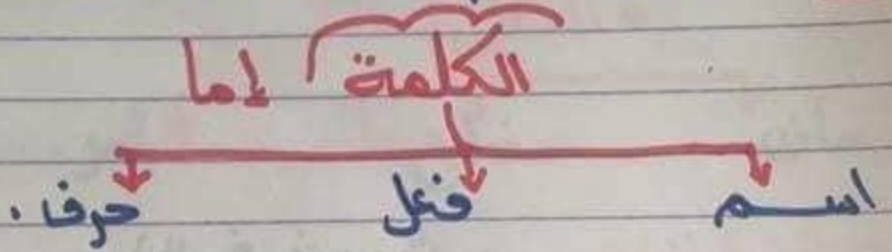 الكلمة إما
اسم فعل حرفا .